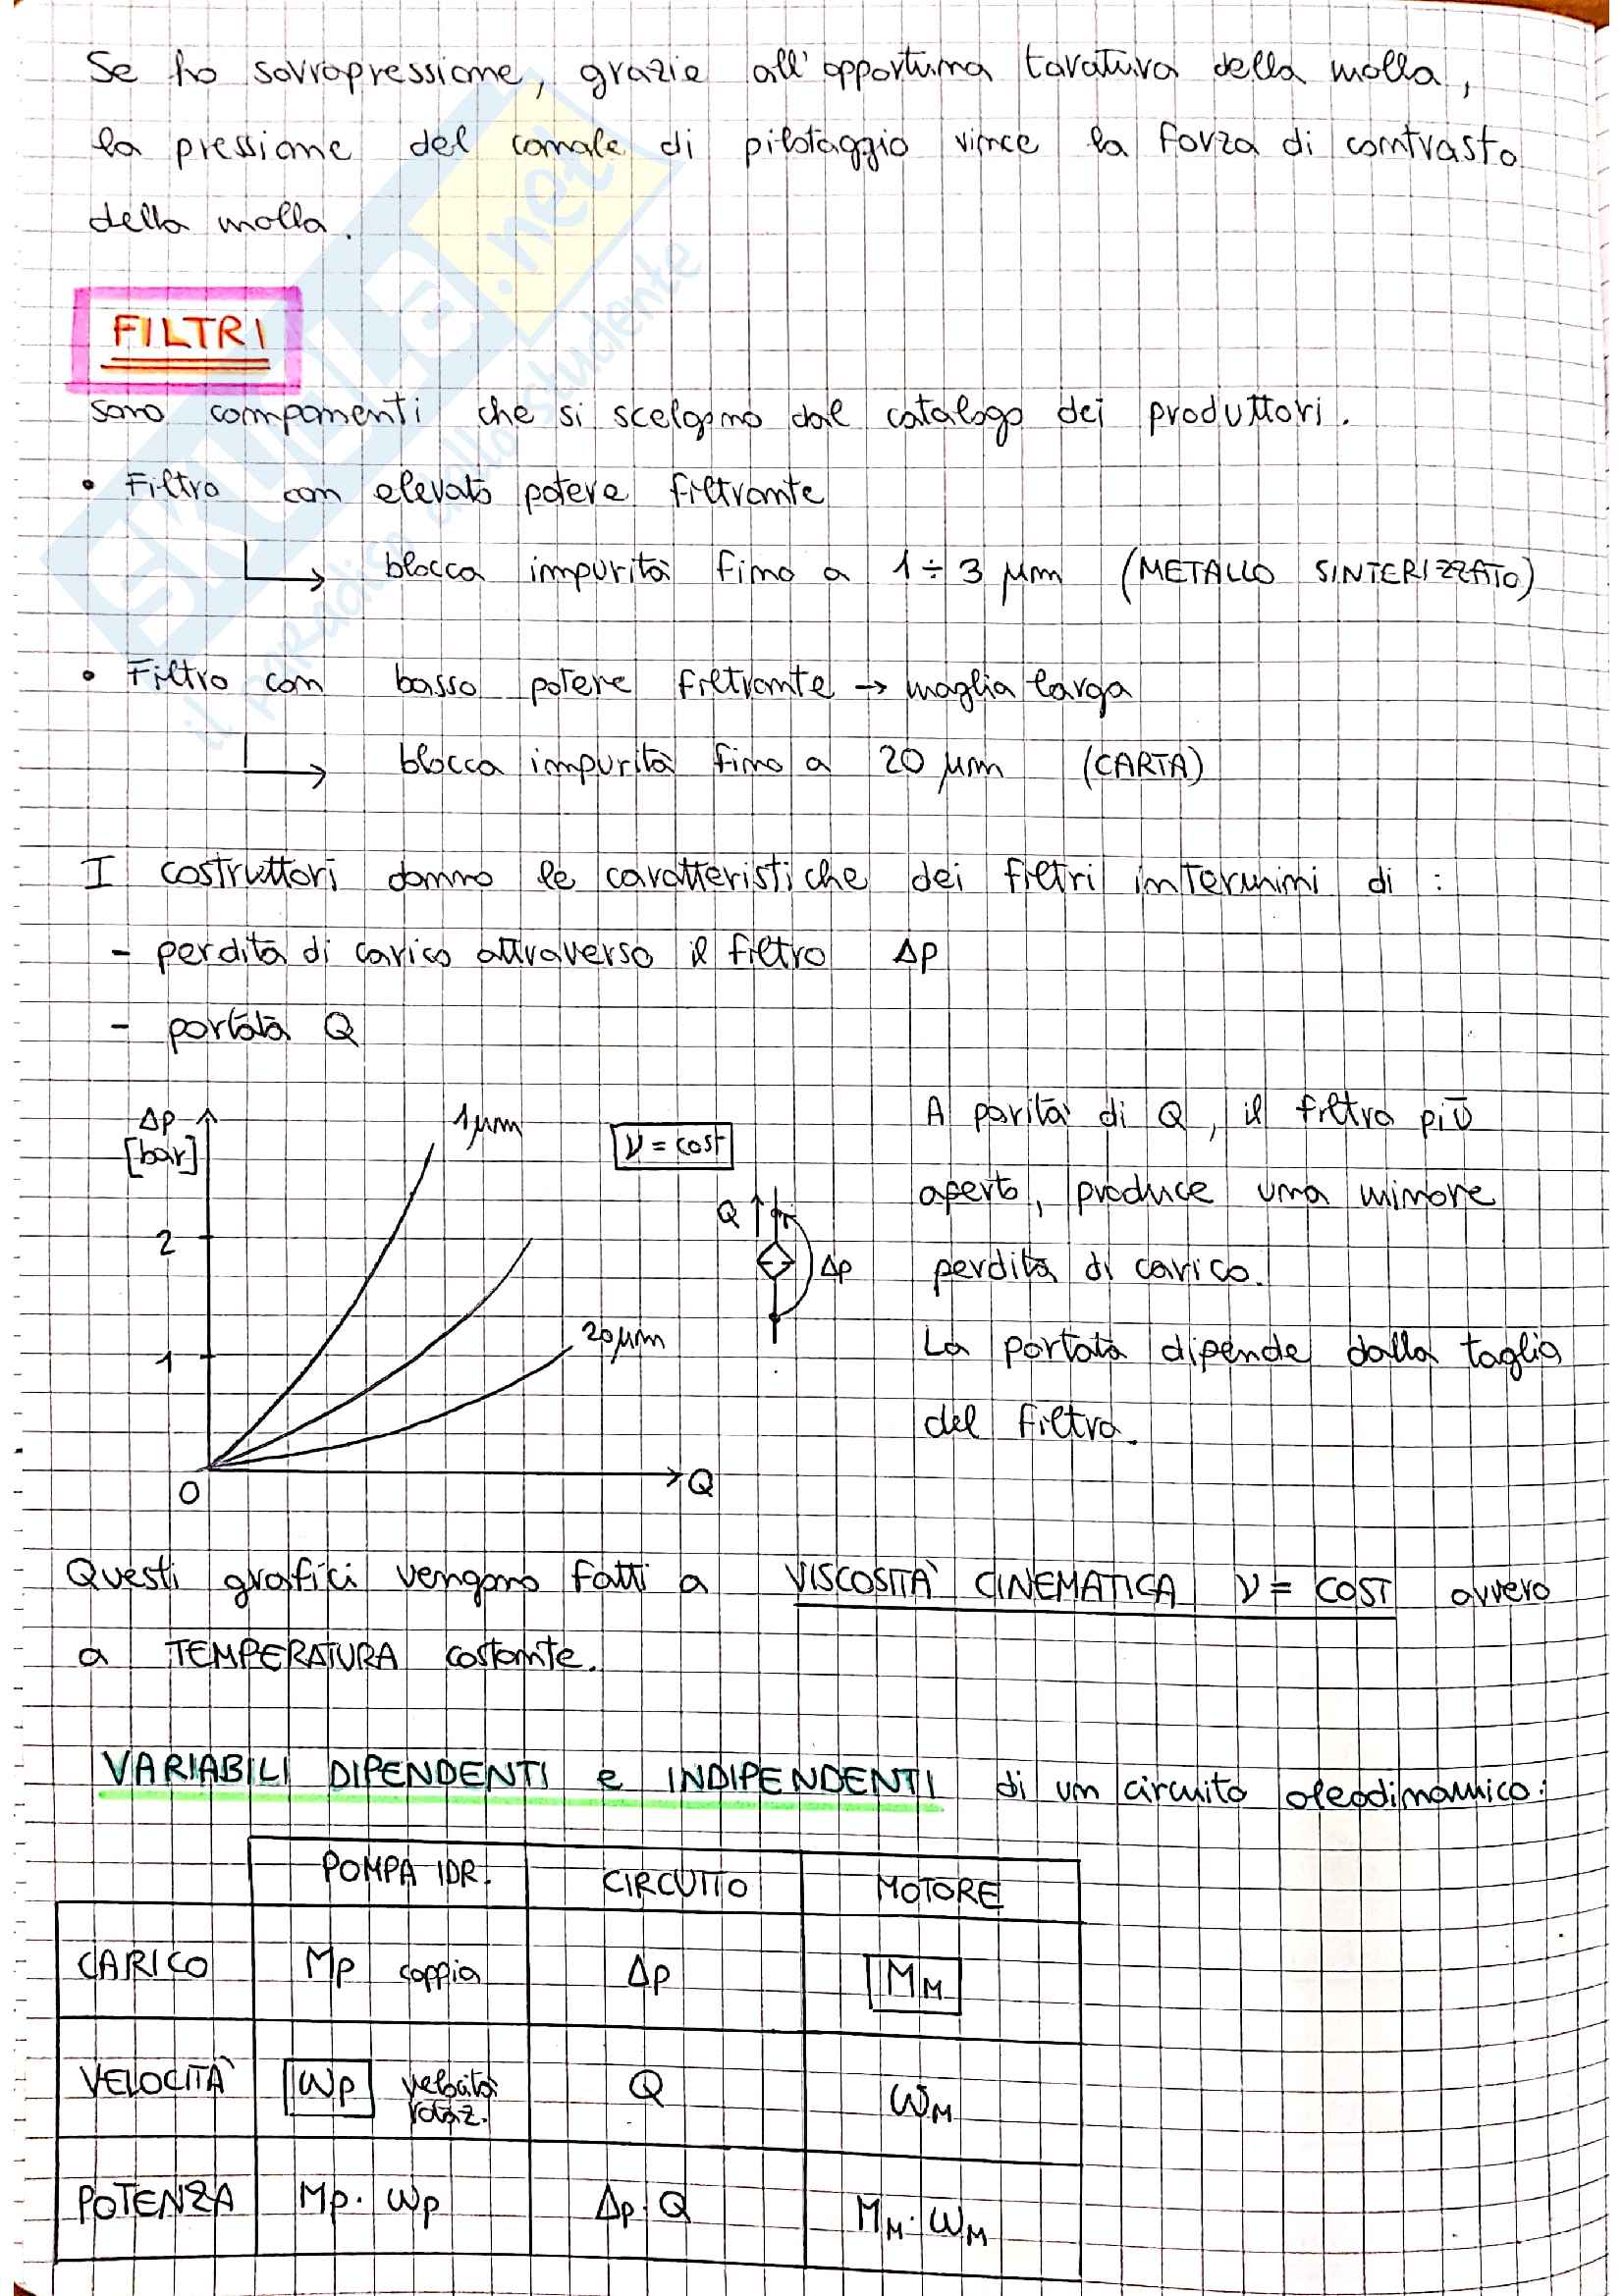 Se ho sovrapressione, grazie all'opportuna taratura della molla,
la pressione del canale di pilotaggio vince la forza di contrasto
della molla.
FILTRI
sono componenti che si scelgono dal catalogo dei produttori.
• Filtro con elevato potere filtrante
blocca impurità fino a 1÷3 μm (METALLO SINTERIZZATO)
• Filtro con basso potere filtrante → maglia larga
blocca impurità fino a 20 μm (CARTA)
I costruttori danno le caratteristiche dei filtri in termini di :
- perdita di carico attraverso il filtro Δp
- portata Q
Δp
[bar]
1μm
ν = cost
2
1
0
20μm
Q
Q
Δp
A parità di Q, il filtro più
aperto, produce una minore
perdita di carico.
La portata dipende dalla taglia
del filtro.
Questi grafici vengono fatti a VISCOSITÀ CINEMATICA ν = COST ovvero
a TEMPERATURA costante.
VARIABILI DIPENDENTI e INDIPENDENTI di un circuito oleodinamico:
POMPA IDR. CIRCUITO MOTORE
CARICO Mp coppia Δp MM
VELOCITÀ ωp velocità rotaz. Q ωM
POTENZA Mp · ωp Δp · Q MM · ωM
SKUOLA.net
il paradiso dello studente